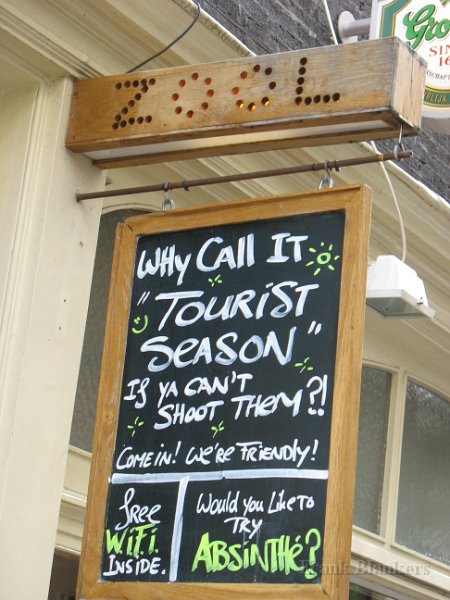 ZOSL
Grol
SIN
16
WHY CALL IT
"TOURIST
SEASON"
IF YA CAN'T
SHOOT THEM?!
COME IN! WE'RE FRIENDLY!
FREE
W.I.F.I.
INSIDE.
WOULD YOU LIKE TO
TRY
ABSINTHE?
Frank Blankers